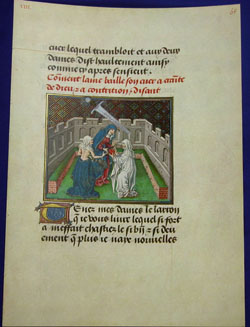 cuer lequel trambloit et aux deux
dames dist haultement ainsy
comme cy apres sensieut
Coment lame baille son cuer a crainte
de dieu et a contrition disant
Tenez mes dames le larron
que vous livre lequel si fort
a meffait chastiez le si bien si deu
ement que plus ie naye nouvelles